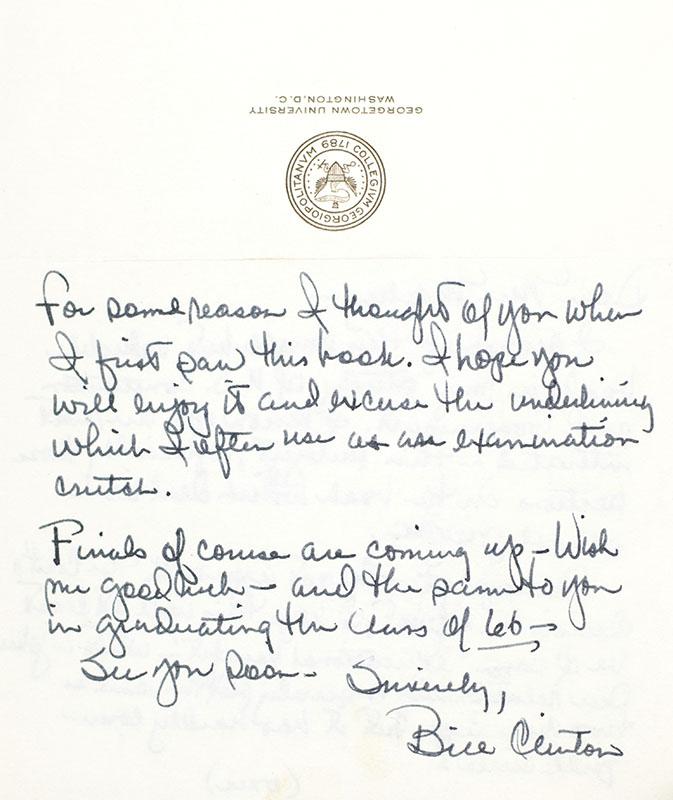 GEORGETOWN UNIVERSITY
WASHINGTON, D.C.
COLLEGIVM GEORGIOPOLITANVM 1789
For some reason I thought of you when
I first saw this book. I hope you
will enjoy it and excuse the underlining
which I often use as an examination
crutch.
Finals of course are coming up – Wish
me good luck – and the same to you
in graduating the class of 66 –
See you soon – Sincerely,
Bill Clinton